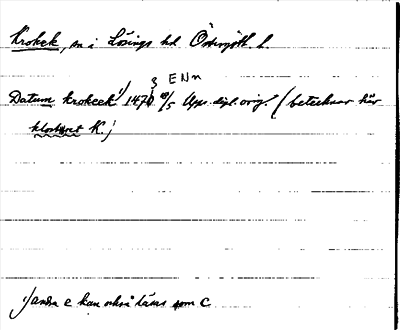 Krokek, sn i Lösings hd. Östergötl. l.
3 ENn
Datum krokeek¹⁾ 1470 18/5 Upps. dipl. orig. (betecknar här
klostret K.)
¹⁾ andra e kan också läsas som c